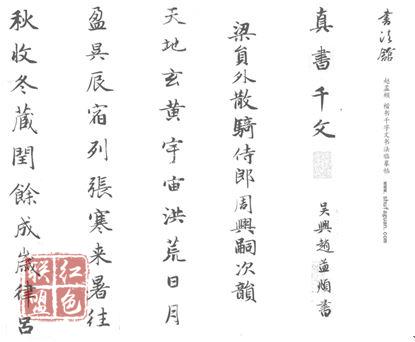 书法馆
赵孟頫 楷书千字文书法临摹帖
www.shufaguan.com
真書千文
吴興趙孟頫書
梁負外散騎侍郎周興嗣次韻
天地玄黄宇宙洪荒日月
盈昃辰宿列張寒来暑往
秋收冬蔵閏餘成嵗律呂
红色联盟